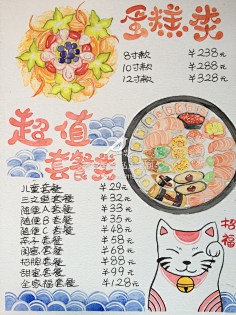 蛋糕类
8寸款 ¥238元
10寸款 ¥288元
12寸款 ¥328元
超值
套餐类
儿童套餐 ¥29元
三文鱼套餐 ¥32元
随便A套餐 ¥33元
随便B套餐 ¥35元
随便C套餐 ¥48元
亲子套餐 ¥58元
闺蜜套餐 ¥68元
招牌套餐 ¥88元
甜蜜套餐 ¥99元
全家福套餐 ¥128元
招福